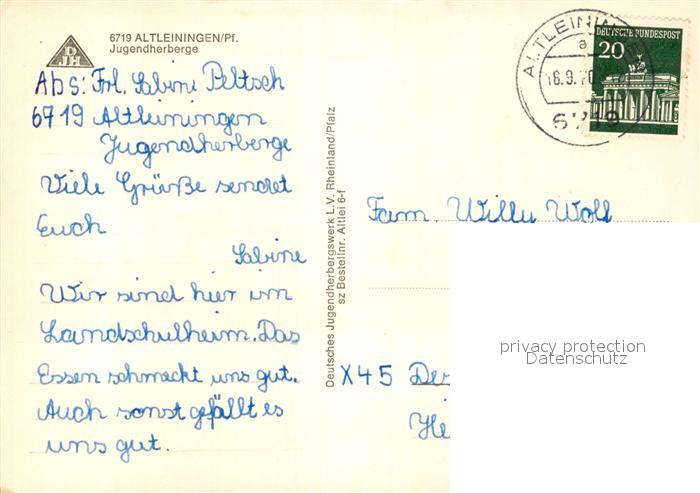 DJH
6719 ALTLEININGEN/Pf.
Jugendherberge
Abs: Frl. Sabine Peltsch
6719 Altleiningen
Jugendherberge
Viele Grüße sendet
Euch
Sabine
Wir sind hier im
Landschulheim. Das
Essen schmeckt uns gut.
Auch sonst gefällt es
uns gut.
Deutsches Jugendherbergswerk L.V. Rheinland/Pfalz
sz Bestellnr. Altlei 6-f
ALTLEININGEN
a
18.9.70
6719
DEUTSCHE BUNDESPOST
20
Fam. Willy Wolf
privacy protection
Datenschutz
X45 Der
He